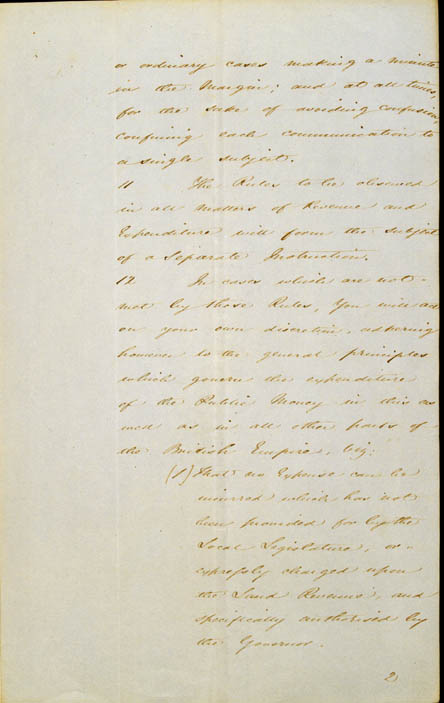 or ordinary cases making a minute
in the Margin; and at all times,
for the sake of avoiding confusion,
confining each communication to
a single subject.
11 The Rules to be observed
in all matters of Revenue and
Expenditure will form the subject
of a Separate Instruction.
12 In cases which are not
met by those Rules, You will act
on your own discretion, adhering
however to the general principles
which govern the expenditure
of the Public Money in this as
well as in all other parts of
the British Empire, viz:
(1) That no Expense can be
incurred which has not
been provided for by the
Local Legislature, or
expressly charged upon
the Land Revenue, and
specifically authorised by
the Governor.
2